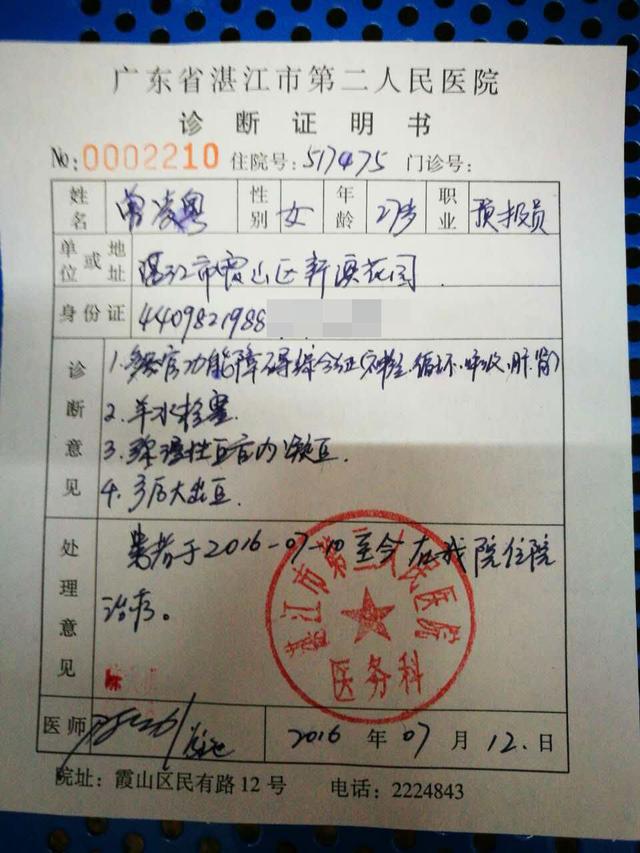 广东省湛江市第二人民医院
诊断证明书
No:0002210 住院号:517475 门诊号:
姓名 曾凌粤 性别 女 年龄 27岁 职业 预报员
单位或地址 湛江市霞山区新澳花园.
身份证 4409821988
诊断意见
1.多器官功能障碍综合征(神经.循环.呼吸.肝.肾)
2.羊水栓塞
3.弥漫性血管内凝血.
4.产后大出血.
处理意见
患者于2016-07-10至今在我院住院
治疗。
湛江市第二人民医院
医务科
医师 2016年07月12.日
院址:霞山区民有路12号 电话:2224843